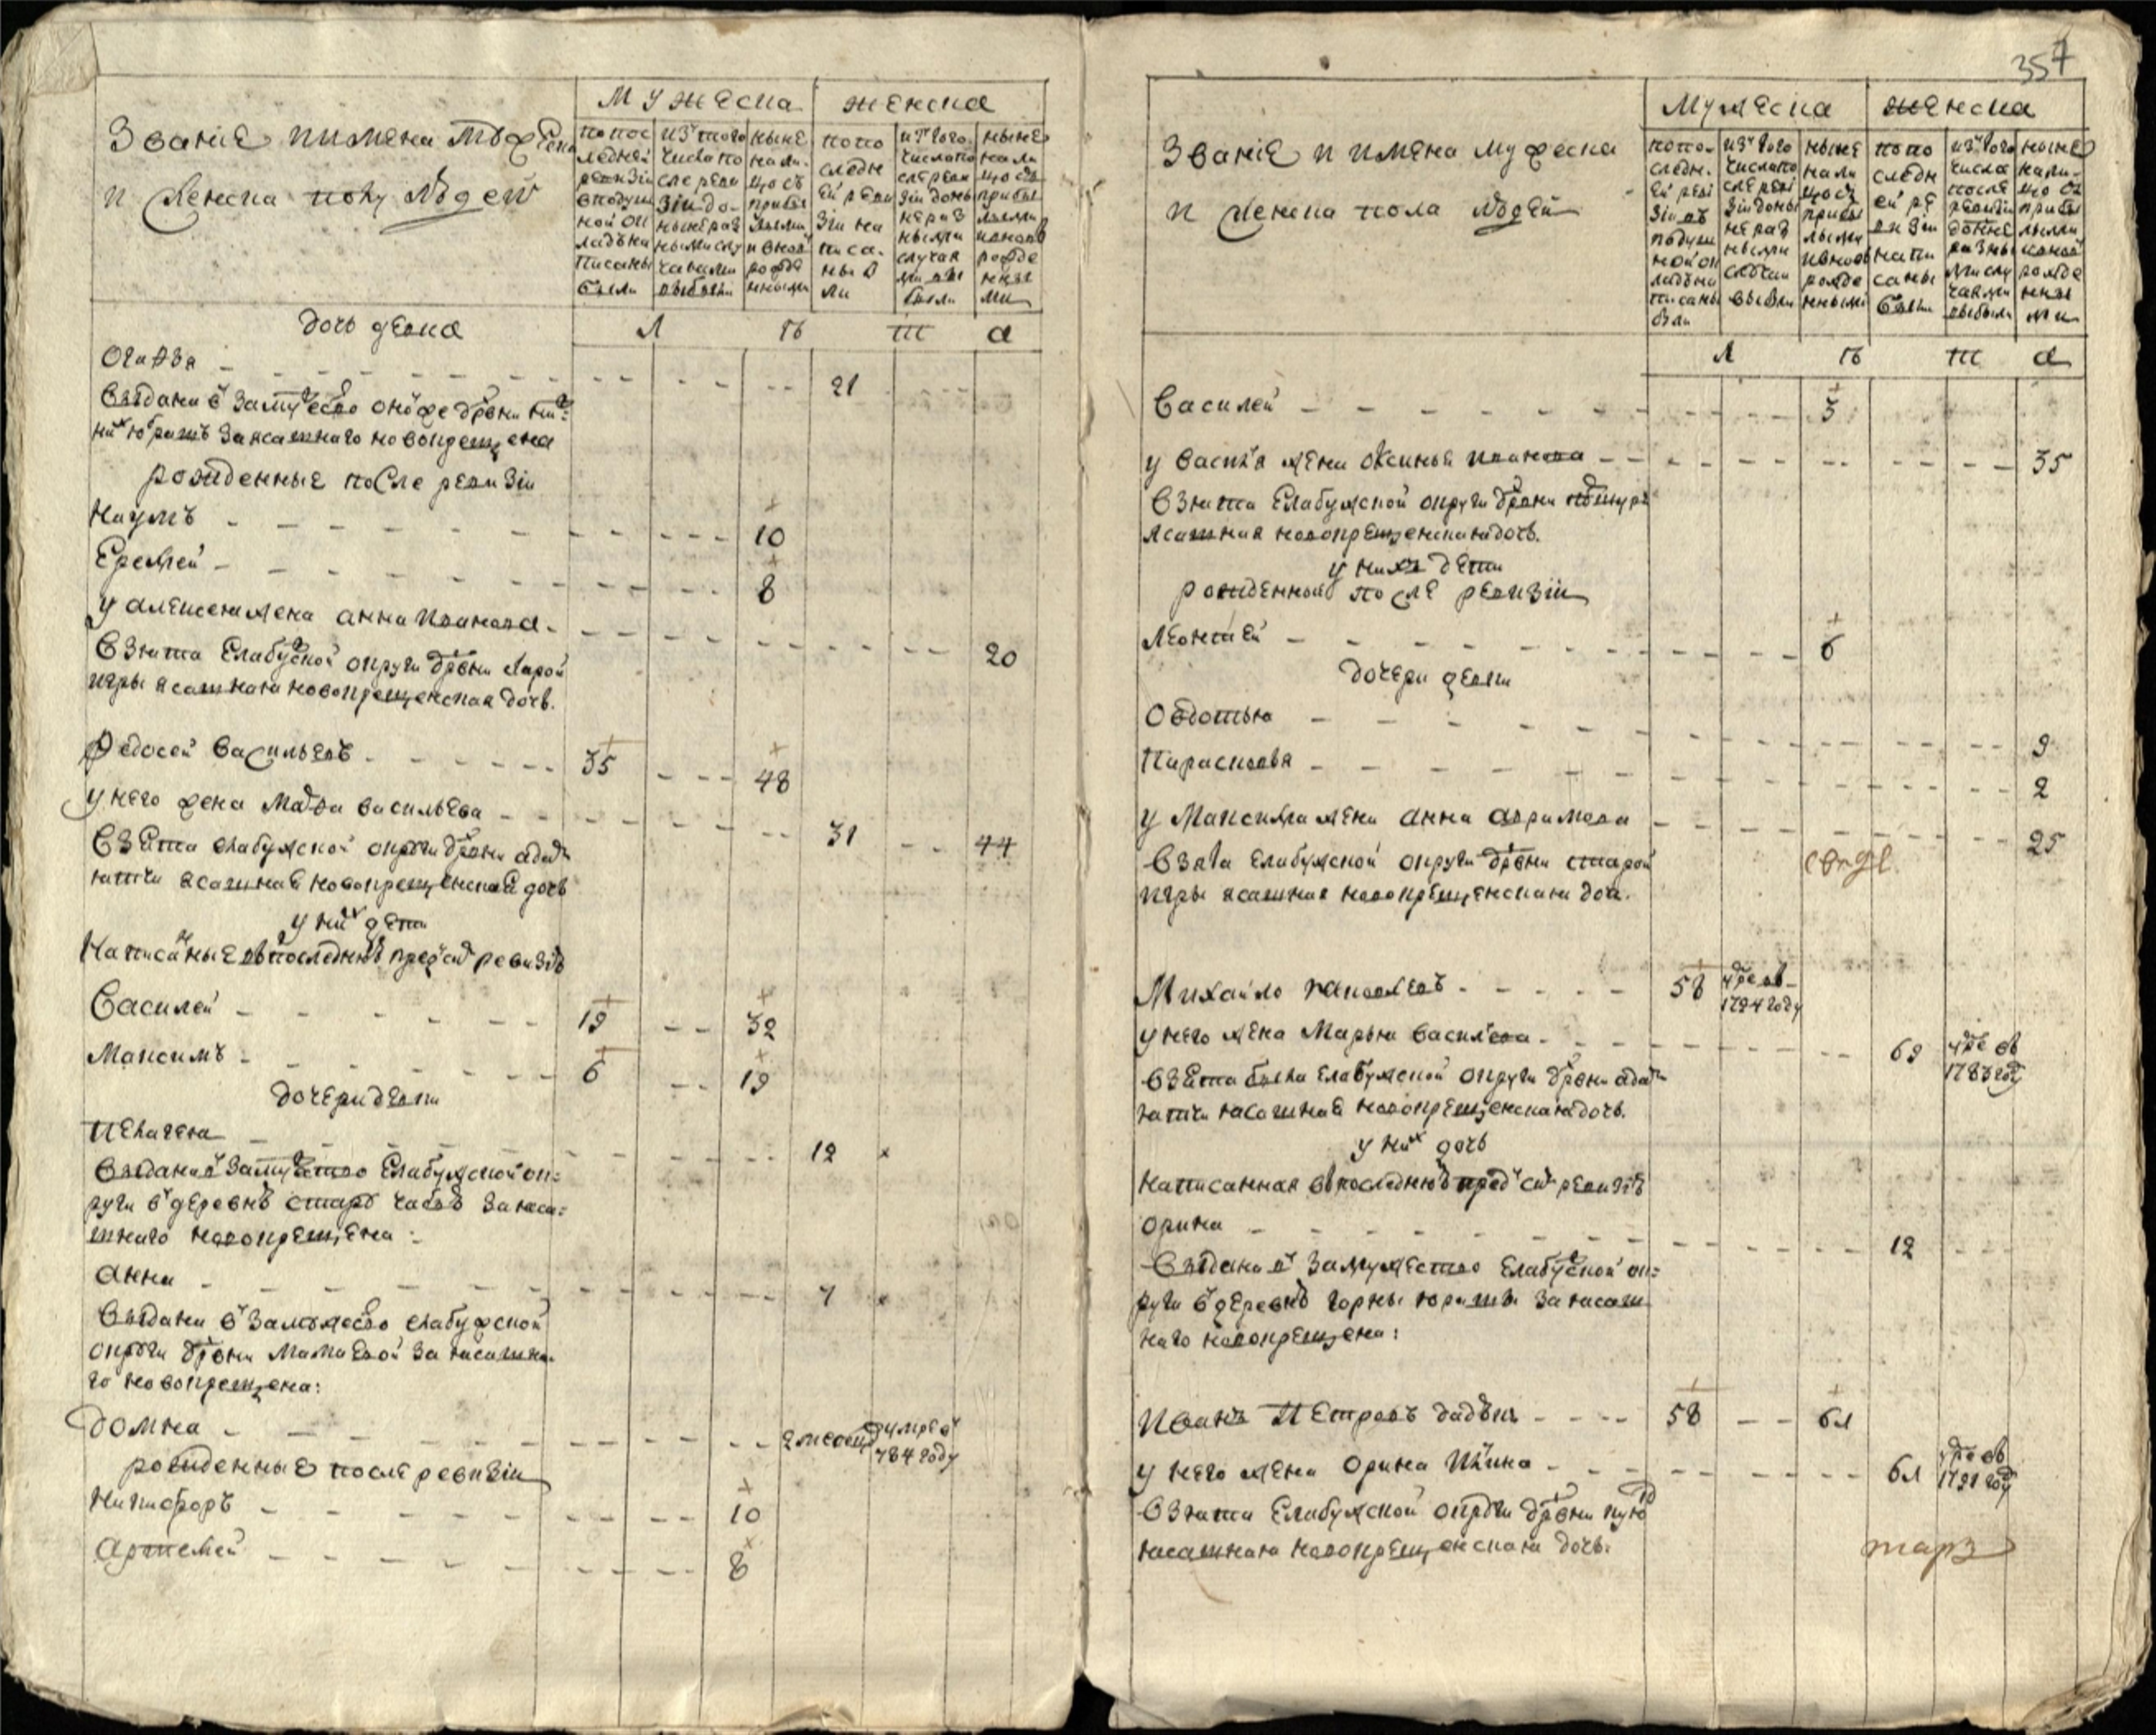 Званіе и имена мужеска
и женска полу людей
мужеска
женска
по пос
ледней
ревизіи
в подуш
ной ок
ладъ на
писаны
были
изъ того
числа по
сле реви
зіи до
ныне раз
ными слу
чаями
выбыли
ныне
нали
цо съ
прибы
лыми
и вновь
рожде
нными
по по
следн
ей реви
зіи на
писа
ны бы
ли
ис того
числа по
сле реви
зіи доны
не раз
ными
случая
ми вы
были
ныне
нали
цо съ
прибы
лыми
и вновь
рожде
нны
ми
дочь девка
Л Ѣ Т А
21
выдана в замужесво оной же дрвни
за ясашнаго новокрещена
рожденные после ревизіи
Наумъ 10
Еремей 8
у алексея жена анна иванова 20
взята Елабуской округи дрвни старой
игры ясашная новокрещенская дочь.
Федосей васильевъ 35 48
у него жена васильева 31 44
взята елабужской округи дрвни
ясашная новокрещенская дочь
у них дети
написаные в последнюю пред сим ревизію
Василей 19 32
Максимъ 6 19
дочери девки
пелагея 12
выдана в замужество Елабужской ок=
руги в деревню за яса=
шнаго новокрещена:
анна 7
выдана в замужесво елабужской
округи дрвни мамаевой за ясашна
го новокрещена:
домна 2 месецов умре в
784 году
рожденные после ревизіи
Никифоръ 10
артемей 8
357
Званіе и имена мужеска
и женска пола людей
мужеска
женска
по по-
следн-
ей реви
зіи въ
подуш
ной ок
ладъ на
писаны
были
изъ того
числа по
сле реви
зіи доны
не раз
ными
случаи
выбыли
ныне
нали
цо съ
прибы
лыми
и вновь
рожде
нными
по по
следн
ей ре
визіи
напи
саны
были
изъ того
числа
после
ревизіи
доныне
разны
ми слу
чаями
выбыли
ныне
нали-
цо съ
прибы
лыми
и вновь
рожде
нны
ми
Л Ѣ Т А
Василей 3
у василья жена оксинья иванова 35
взята Елабужской округи дрвни
ясашная новокрещенская дочь.
у них дети
рожденной после ревизіи
леонтей 6
дочери девки
овдотья 9
Парасковья 2
у Максима жена анна 25
взята елабужской округи дрвни старой
игры ясашная новокрещенская доч.
Михайло яковлевъ 58 умре в
1794 году
у него жена Марья василева 69 умре в
1783 году
взята была елабужской округи дрвни
ясашная новокрещенская дочь.
у них дочь
написанная в последнюю пред сим ревизію
орина 12
выдана в замужество елабуской ок=
руги в деревню горны юраши за ясаш
наго новокрещена:
Иванъ Петровъ 58 61
у него жена орина 61 умре в
1791 году
взята Елабужской округи дрвни
ясашная новокрещенская дочь.